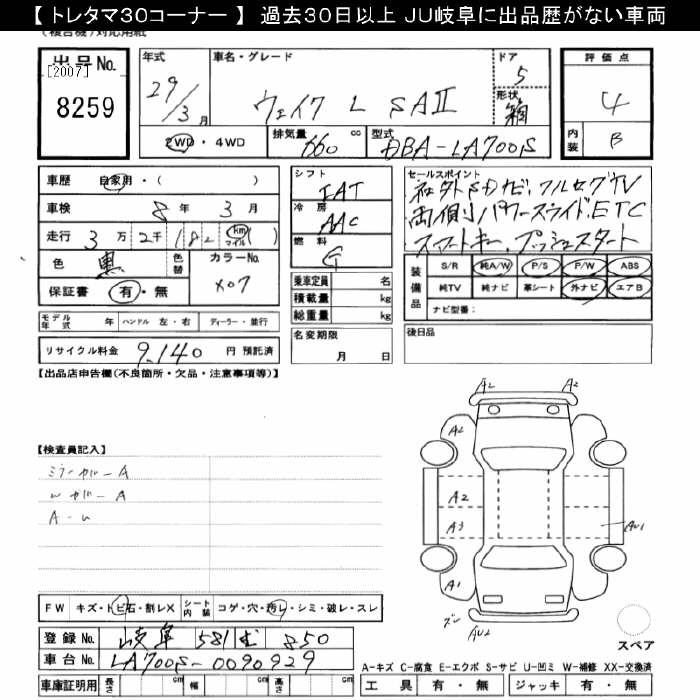 【 トレタマ30コーナー 】 過去30日以上 JU岐阜に出品歴がない車両
(複合機)対応用紙
出品No.
[2007]
8259
年式
29/3月
車名・グレード
ウェイク L SAⅡ
ドア
5
形状
箱
評価点
4
内装
B
2WD・4WD
排気量
660 cc
型式
DBA-LA700S
車歴 自家用・( )
車検 8年 3月
走行 3万 2千 182 km マイル
色 黒 色替
カラーNo. X07
保証書 有・無
モデル年式 年 ハンドル 左・右 ディーラー・並行
リサイクル料金 9,140 円 預託済
シフト
IAT
冷房
AAC
燃料
G
乗車定員 名
積載量 kg
総重量 kg
名変期限
月 日
セールスポイント
社外SDナビ、フルセグTV
両側パワースライド、ETC
スマートキー、プッシュスタート
装備品
S/R 純A/W P/S P/W ABS
純TV 純ナビ 革シート 外ナビ エアB
ナビ型番:
後日品
【出品店申告欄(不良箇所・欠品・注意事項等)】
【検査員記入】
ミラーカバーA
A2 A2
A2
A2
A3
AU1
A1
AU2
スペア
FW キズ・トビ石・割レX シート内装 コゲ・穴・汚レ・シミ・破レ・スレ
登録No. 岐阜 581 む 850
車台No. LA700S-0090929
車庫証明用 長さ cm 幅 cm 高さ cm
A-キズ C-腐食 E-エクボ S-サビ U-凹ミ W-補修 XX-交換済
工具 有・無 ジャッキ 有・無